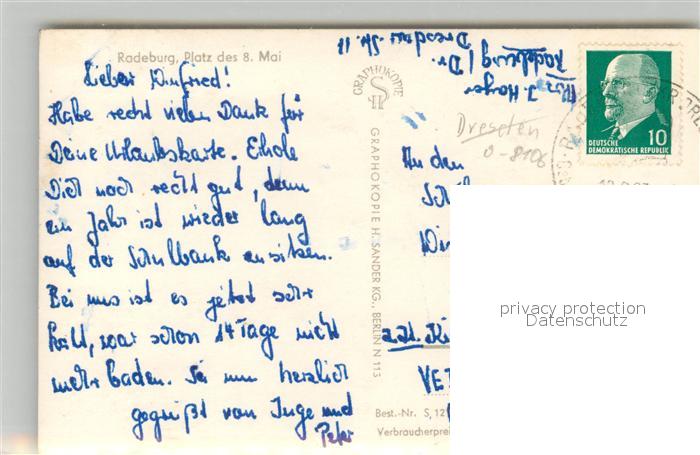 Radeburg, Platz des 8. Mai
Lieber Winfried!
Habe recht vielen Dank für
Deine Urlaubskarte. Erhole
Dich noch recht gut, denn
ein Jahr ist wieder lang
auf der Schulbank ansitzen.
Bei uns ist es jetzt sehr
kalt, war schon 14 Tage nicht
mehr baden. Sei nun herzlich
gegrüßt von Inge und
Peter
GRAPHOKOPIE
GRAPHOKOPIE H. SANDER KG., BERLIN N 113
Radeburg / Dr.
Dresdner Str. 11
Dresden
0-8106
10
DEUTSCHE
DEMOKRATISCHE REPUBLIK
An den
Best.-Nr. S, 12
Verbraucherprei
privacy protection
Datenschutz